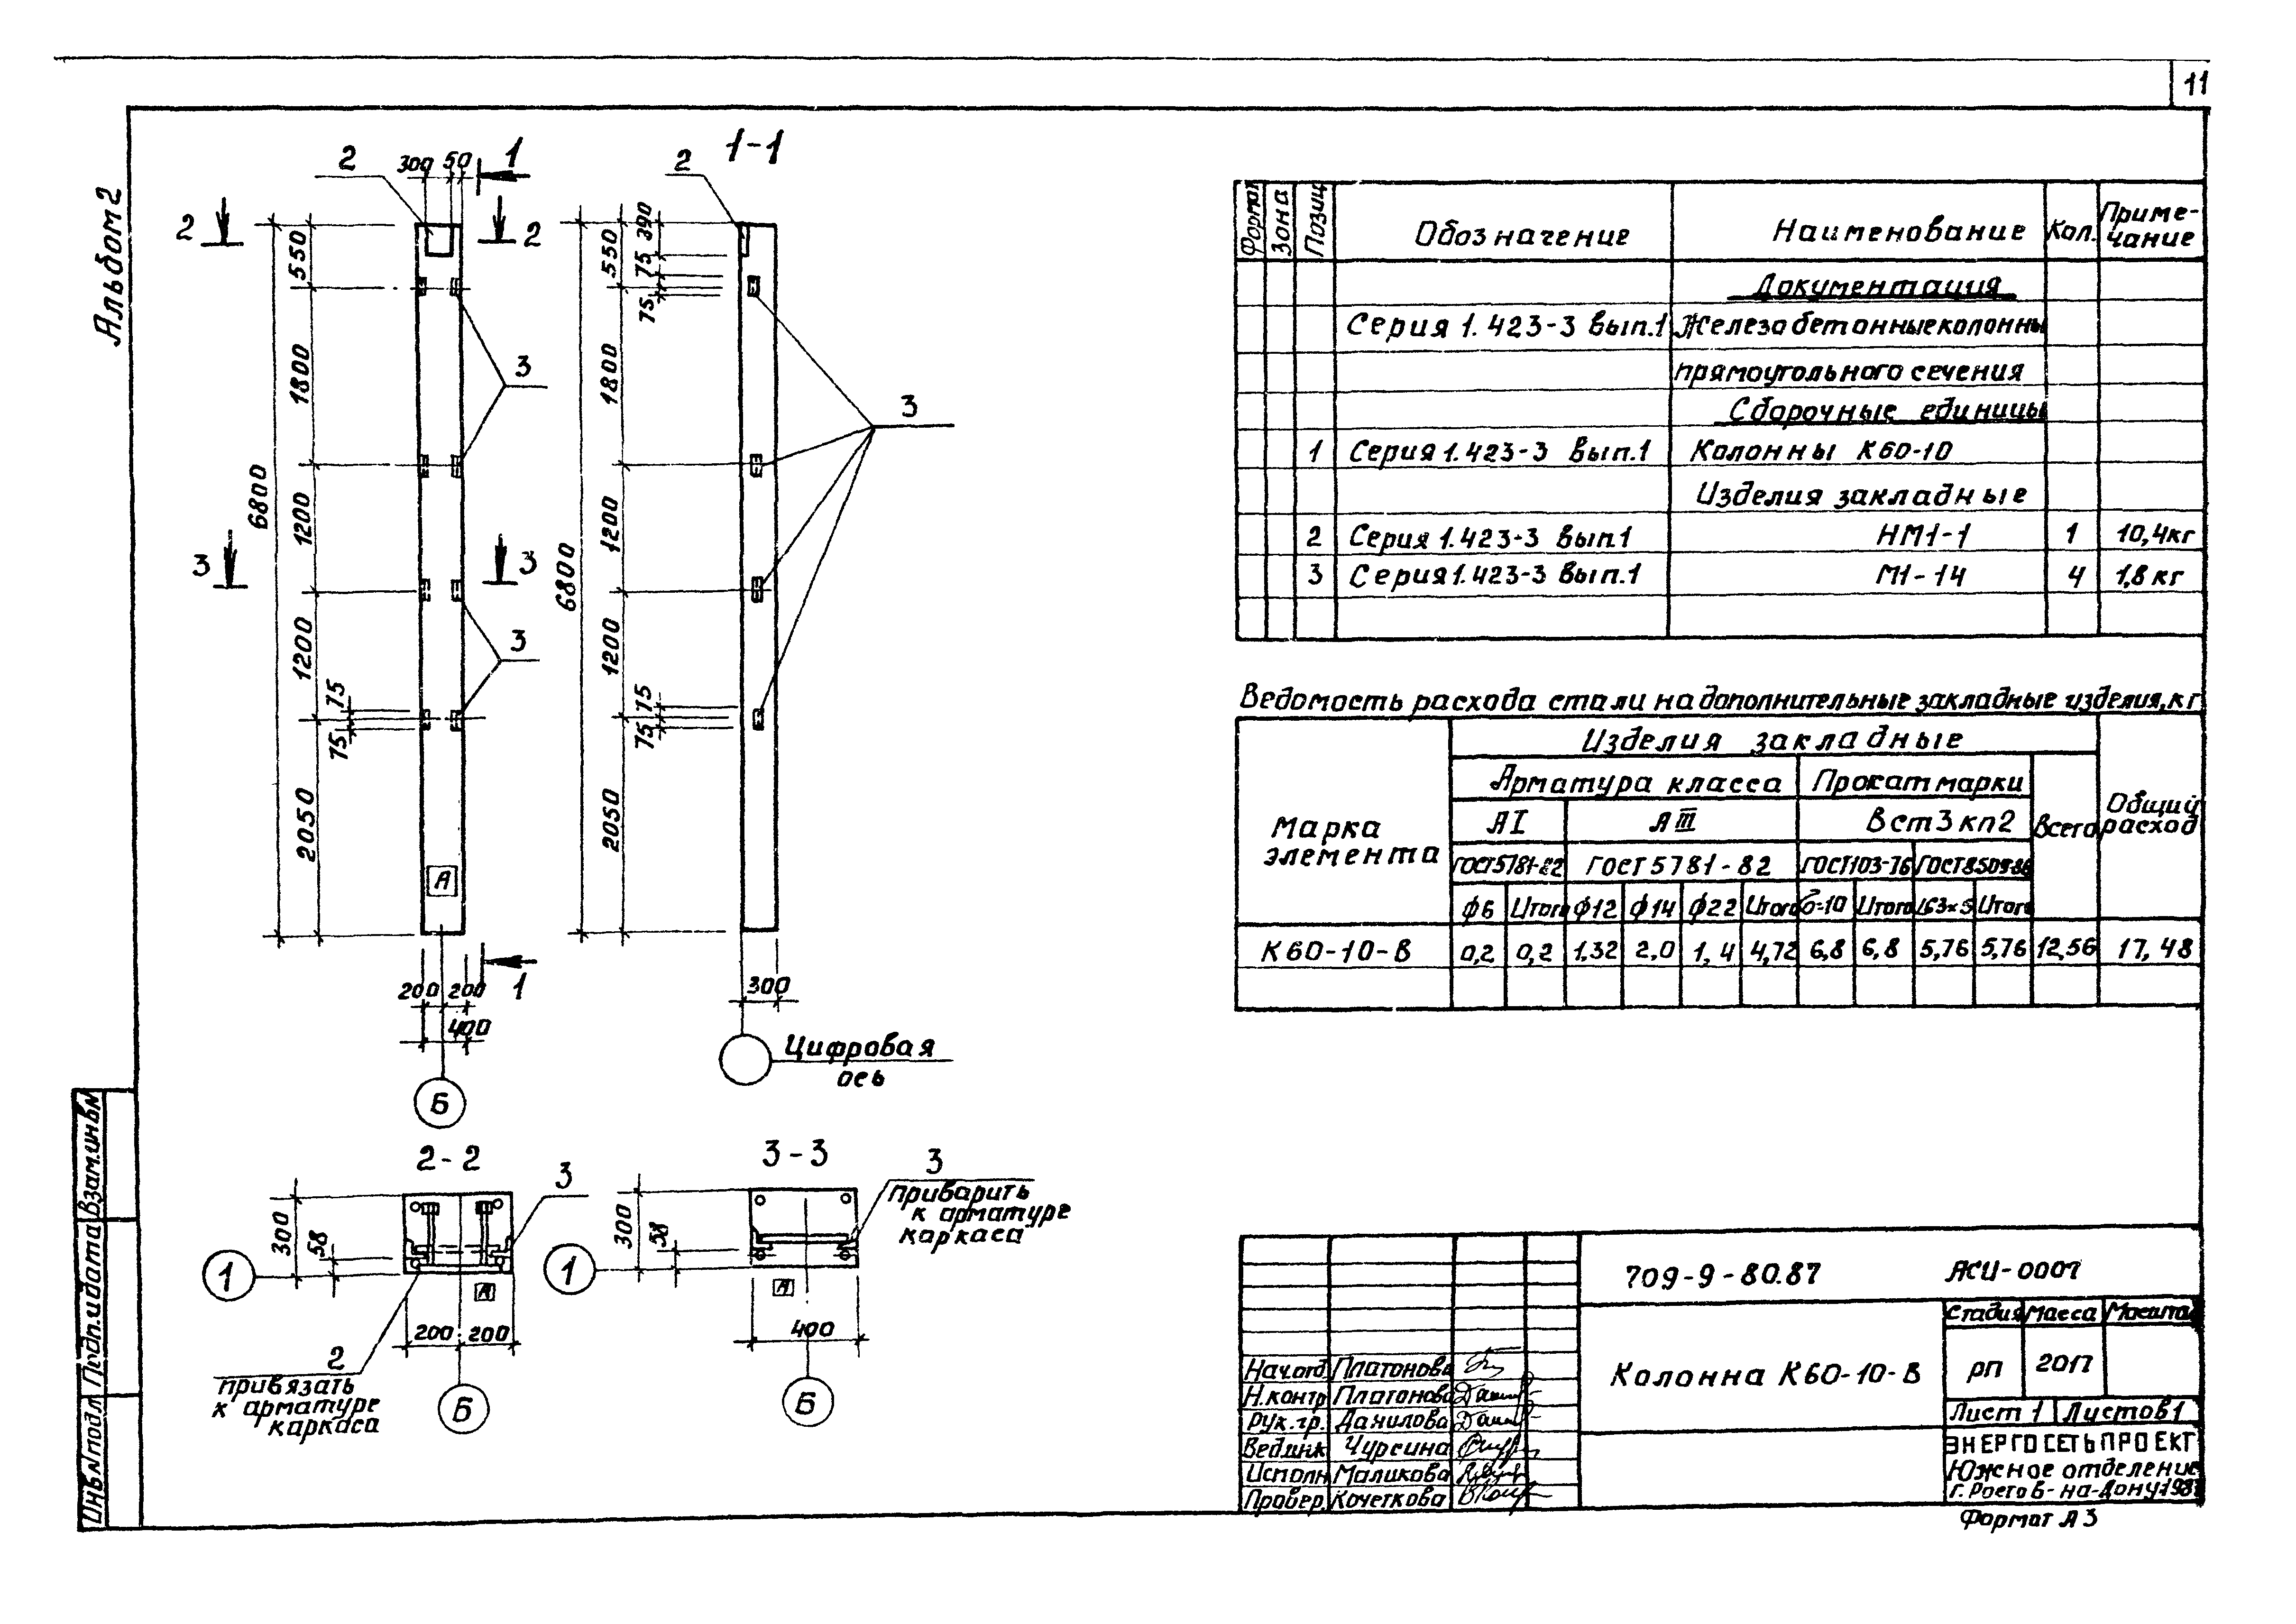 11
Альбом 2
1-1
2
300
50
1
2
2
2
550
1800
1200
1200
2050
6800
75
75
3
3
3
3
А
200
200
400
1
Б
390
550
75
75
1800
1200
1200
2050
6800
75
75
3
300
Цифровая
ось
2-2
3
300
58
1
А
200
200
2
привязать
к арматуре
каркаса
Б
3-3
3
приварить
к арматуре
каркаса
300
58
1
А
400
Б
Формат
Зона
Позиц
Обозначение
Наименование
Кол.
Приме-
чание
Документация
Серия 1.423-3 вып.1 Железобетонные колонны
прямоугольного сечения
Сборочные единицы
1 Серия 1.423-3 вып.1 Колонны К60-10
Изделия закладные
2 Серия 1.423-3 вып.1 НМ1-1 1 10,4кг
3 Серия 1.423-3 вып.1 М1-14 4 1,8 кг
Ведомость расхода стали на дополнительные закладные изделия, кг
Марка
элемента
Изделия закладные
Арматура класса
Прокат марки
АI
АIII
Вст3кп2
Всего
Общий
расход
ГОСТ5781-82
ГОСТ5781-82
ГОСТ103-76
ГОСТ8509-86
ф6 Итого ф12 ф14 ф22 Итого δ-10 Итого L63×5 Итого
К60-10-В 0,2 0,2 1,32 2,0 1,4 4,72 6,8 6,8 5,76 5,76 12,56 17,48
709-9-80.87 АСИ-0007
Колонна К60-10-В
Стадия Масса Масштаб
рп 2017
Лист 1 Листов 1
ЭНЕРГОСЕТЬПРОЕКТ
Южное отделение
г. Ростов-на-Дону 1987
Нач.отд. Платонова
Н.контр Платонова
Рук.гр. Данилова
Вед.инж Чурсина
Исполн Маликова
Провер. Кочеткова
Формат А3
Взам.инв№
Подп.и дата
Инв.№подл